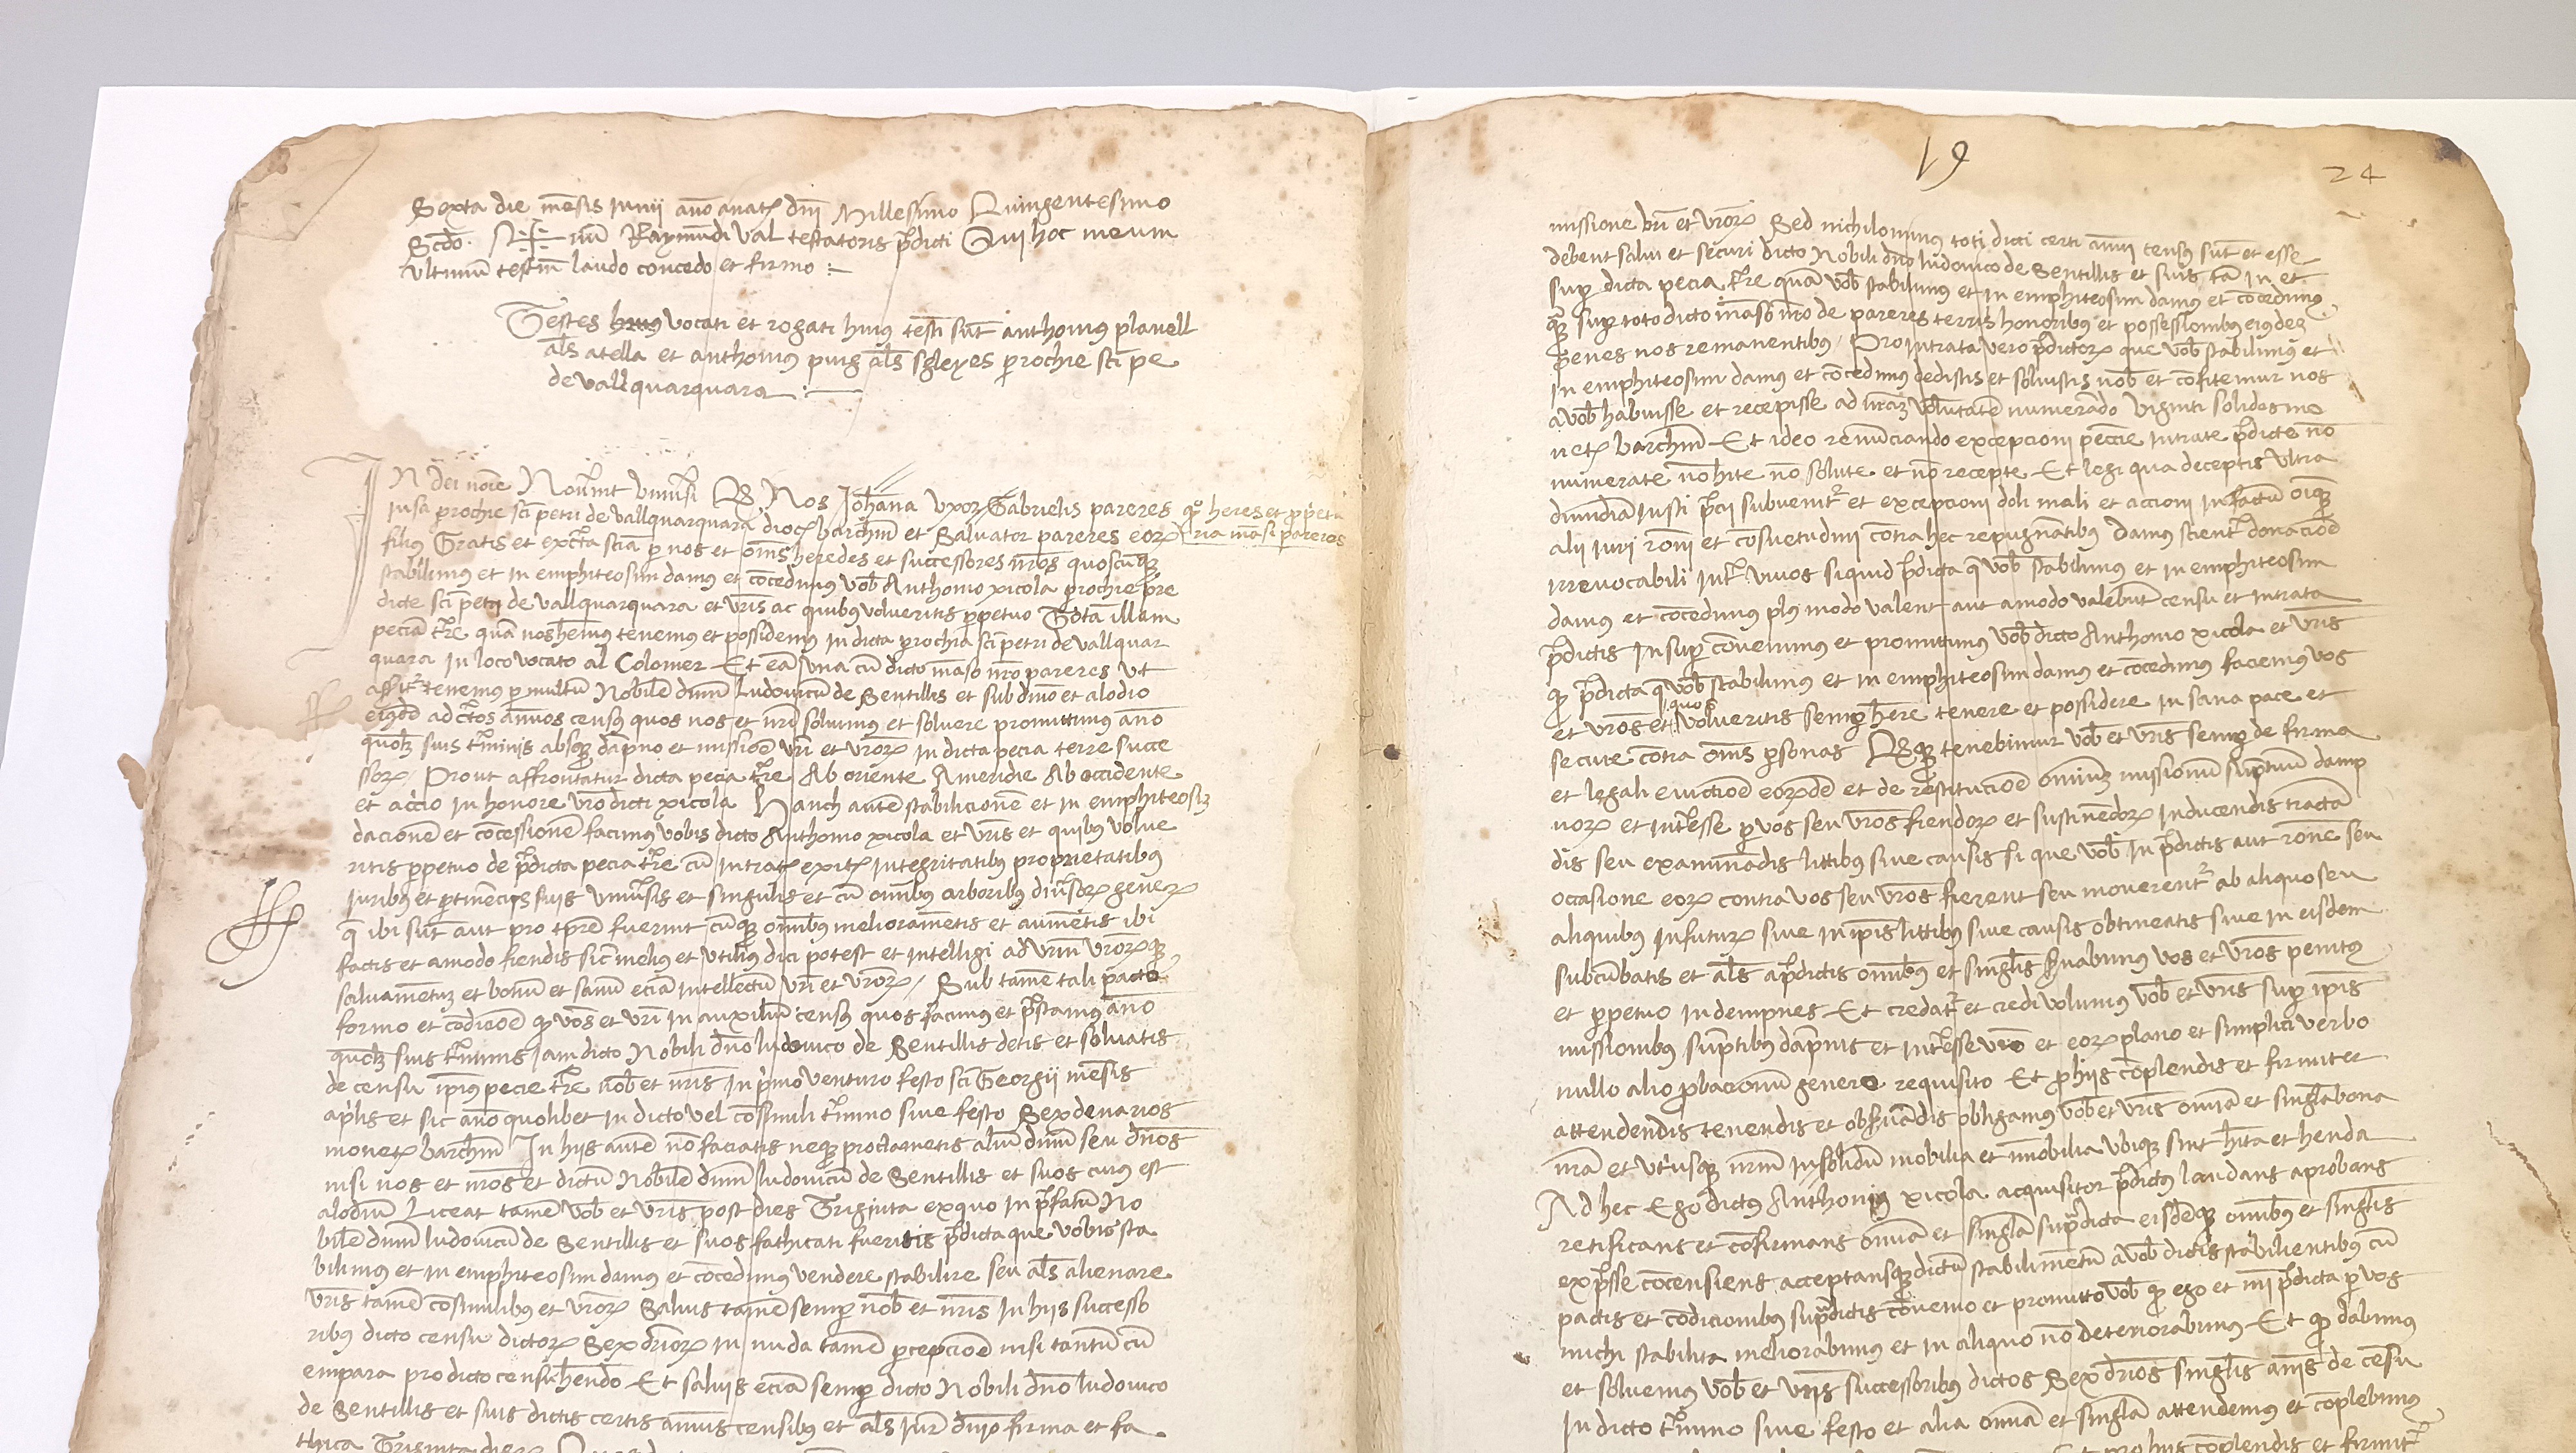 Sexta die mēsis Junij año anatꝫ dñi Millesimo Quingentesimo
Scdo. S+num Raymūdi Val testatoris p̄dicti Qui hoc meum
ultimū testm̄ laudo concedo et firmo :~
Testes huius vocati et rogati huius testi sūt anthonius planell
als̄ atella et anthonius puig als̄ sgleyes prochie sc̄i pe
de vallquarquara :~
In dei noīe Nouerint vniūsi Q Nos Johāna vxor Gabrielis pareres qᵒ heres et ppeta
Jusa prochie sc̄i petri de vallquarquara dioc̄ barchn̄ et Saluator pareres eorꝫ ria māsi pareres
filius Gratis et ex c̄ta sciā p nos et oēs heredes et successores nr̄os quoscūqꝫ
stabilimus et in emphiteosim damus et cōcedimus vob̄ Anthonio xicola prochie pre
dicte sc̄i petri de vallquarquara et vr̄is ac quibus volueritis ppetuo Totā illam
peciā tr̄e quā nos hēmus tenemus et possidemus in dicta prochia sc̄i petri de vallquar
quara in loco vocato al Colomer Et eā vna cū dicto māso nr̄o pareres vt
affirtʳ tenemus p multū Nobilē dnm̄ Ludouicū de Sentillis et sub dnio et alodio
eiusdē ad c̄tos annuos census quos nos et nr̄i soluimus et soluere promittimus año
quolꝫ suis tr̄minis absqꝫ dāpno et missiōe vr̄i et vr̄orꝫ in dicta pecia terre succe
ssorꝫ / Prout affrontatur dicta pecia tr̄e Ab oriente Ameridie Ab occidente
et a circio in honore vr̄o dicti xicola Hanch autē stabilicionē et in emphiteosiꝫ
dacionē et concessionē facimus vobis dicto Anthonio xicola et vr̄is et quibus volue
ritis ppetuo de p̄dicta pecia tr̄e cū intratꝫ exitꝫ integritatibus proprietatibus
Juribus et ptinēcijs suis vniūsis et singulis et cū omībus arboribus diūsorꝫ generꝫ
q̄ ibi sūt aut pro tpr̄e fuerint cūqꝫ omībus melioramētis et aumētis ibi
factis et amodo fiendis sic̄ melius et vtilius dici potest et intelligi ad vr̄m vr̄orꝫqꝫ
saluamētuꝫ et bonū et sanū eciā intellectū vr̄i et vr̄orꝫ / Sub tamē tali pacto
formo et cōdiciōe qꝫ vos et vr̄i in auxiliū census quos facimus et p̄stamus año
quolꝫ suis tr̄minis iam dicto Nobili dn̄o ludouico de Sentillis detis et soluatis
de censu ipīus pecie tr̄e nob̄ et nr̄is in primo venturo festo sc̄i Georgij mēsis
aplis et sic año quolibet in dicto vel cōsimili tr̄mino siue festo Sex denarios
monetꝫ barchn̄ In hijs autē nō faciatis neqꝫ proclametis aliū dnm̄ seu dn̄os
nisi nos et nr̄os et dictū Nobilē dnm̄ ludouicū de Sentillis et suos cuius est
alodiū Liceat tamē vob̄ et vr̄is post dies Triginta ex quo in p̄fatū No
bilē dnm̄ ludouicū de Sentillis et suos fathicati fueritis p̄dicta que vobis sta
bilimus et in emphiteosim damus et cōcedimus vendere stabilire seu als̄ alienare
vr̄is tamē cōsimilibus et vr̄orꝫ Saluis tamē semp nob̄ et nr̄is in hijs successo
ribus dicto censu dictorꝫ Sex drīorꝫ in nuda tamē pcepciōe nisi tantū cū
empara pro dicto censu hēndo Et saluis eciā semp dicto Nobili dn̄o ludouico
de Sentillis et suis dictis certis annuis censibus et als̄ Jur̄ dn̄io firma et fa
thica Triginta dierꝫ
19
24
missione vr̄i et vr̄orꝫ Sed nichilominus toti dicti certi annui census sūt et esse
debent salui et securi dicto Nobili dn̄o ludouico de Sentillis et suis tā in et
sup dicta pecia tr̄e quā vob̄ stabilimus et in emphiteosim damus et cōcedimus
qꝫ sup toto dicto māso nr̄o de pareres terris honoribus et possessionibus eiusdē
penes nos remanentibus / Pro intrata vero p̄dictorꝫ que vob̄ stabilimus et
in emphiteosim damus et cōcedimus dedistis et soluistis nob̄ et cōfitemur nos
a vob̄ habuisse et recepisse ad nr̄aꝫ volūtatē numerādo viginti solidos mo
netꝫ barchn̄ Et ideo renūciando excepcioni peccīe intrate p̄dicte nō
numerate nō h̄ite nō solute et nō recepte Et legi qua deceptis vltra
dimidiā iusti p̄cij subuenitʳ et excepcioni doli mali et accioni in factū oīqꝫ
alij iuri roni et cōsuetudini cōtra hec repugnātibus Damus scient̄ donaciōe
irreuocabili int̄ viuos siquid p̄dicta q̄ vob̄ stabilimus et in emphiteosim
damus et cōcedimus plus modo valent aut amodo valebūt censu et intrata
p̄dictis Insup cōuenimus et promittimus vob̄ dicto Anthonio xicola et vr̄is
qꝫ p̄dicta q̄ vob̄ stabilimus et in emphiteosim damus et cōcedimus faciemus vos
et vr̄os et quos volueritis semp hēre tenere et possidere in sana pace et
secure cōtra oēs psonas Qꝫqꝫ tenebimur vob̄ et vr̄is semp de firma
et legali euictiōe eorꝫdē et de restituciōe omniuꝫ missionū sūptuū damp
norꝫ et int̄esse p vos seu vr̄os fiendorꝫ et sustinēdorꝫ in ducendis tractā
dis seu examinādis littibus siue causis si que vob̄ in p̄dictis aut ronē seu
occasione eorꝫ contra vos seu vr̄os fierent seu mouerentʳ ab aliquo seu
aliquibus in futurꝫ siue in ipīs littibus siue causis obtineatis siue in eisdem
subcūbatis et als̄ a p̄dictis omībus et singl̄is seruabimus vos et vr̄os penitus
et ppetuo indempnes Et credatʳ et credi volumus vob̄ et vr̄is sup ipīs
missionibus sūptibus dāpnis et int̄esse vr̄o et eorꝫ plano et simplici verbo
nullo alio pbacionū genere requisito Et p hijs cōplendis et firmiter
attendendis tenendis et obseruādis obligamus vob̄ et vr̄is omīa et singl̄a bona
nr̄a et vtriusqꝫ nr̄m insolidū mobilia et īmobilia vbiqꝫ sint h̄ita et hēnda
Ad hec Ego dictus Anthonius xicola acquisitor p̄dictus laudans aprobans
retificans et cōfirmans omīa et singl̄a sup̄dicta eisdēqꝫ omībus et singl̄is
exp̄sse cōcensiens acceptansqꝫ dictū stabilimētū a vob̄ dictis stabilientibus cū
pactis et cōdicionibus sup̄dictis cōuenio et promitto vob̄ qꝫ ego et mī p̄dicta p vos
michi stabilita meliorabimus et in aliquo nō deteriorabimus Et qꝫ dabimus
et soluemus vob̄ et vr̄is successoribus dictos Sex drīos singl̄is ānis de cēsu
in dicto tr̄mino siue festo et alia omīa et singl̄a attendemus et cōplebimus
Et pro hijs cōplendis et firmitʳ